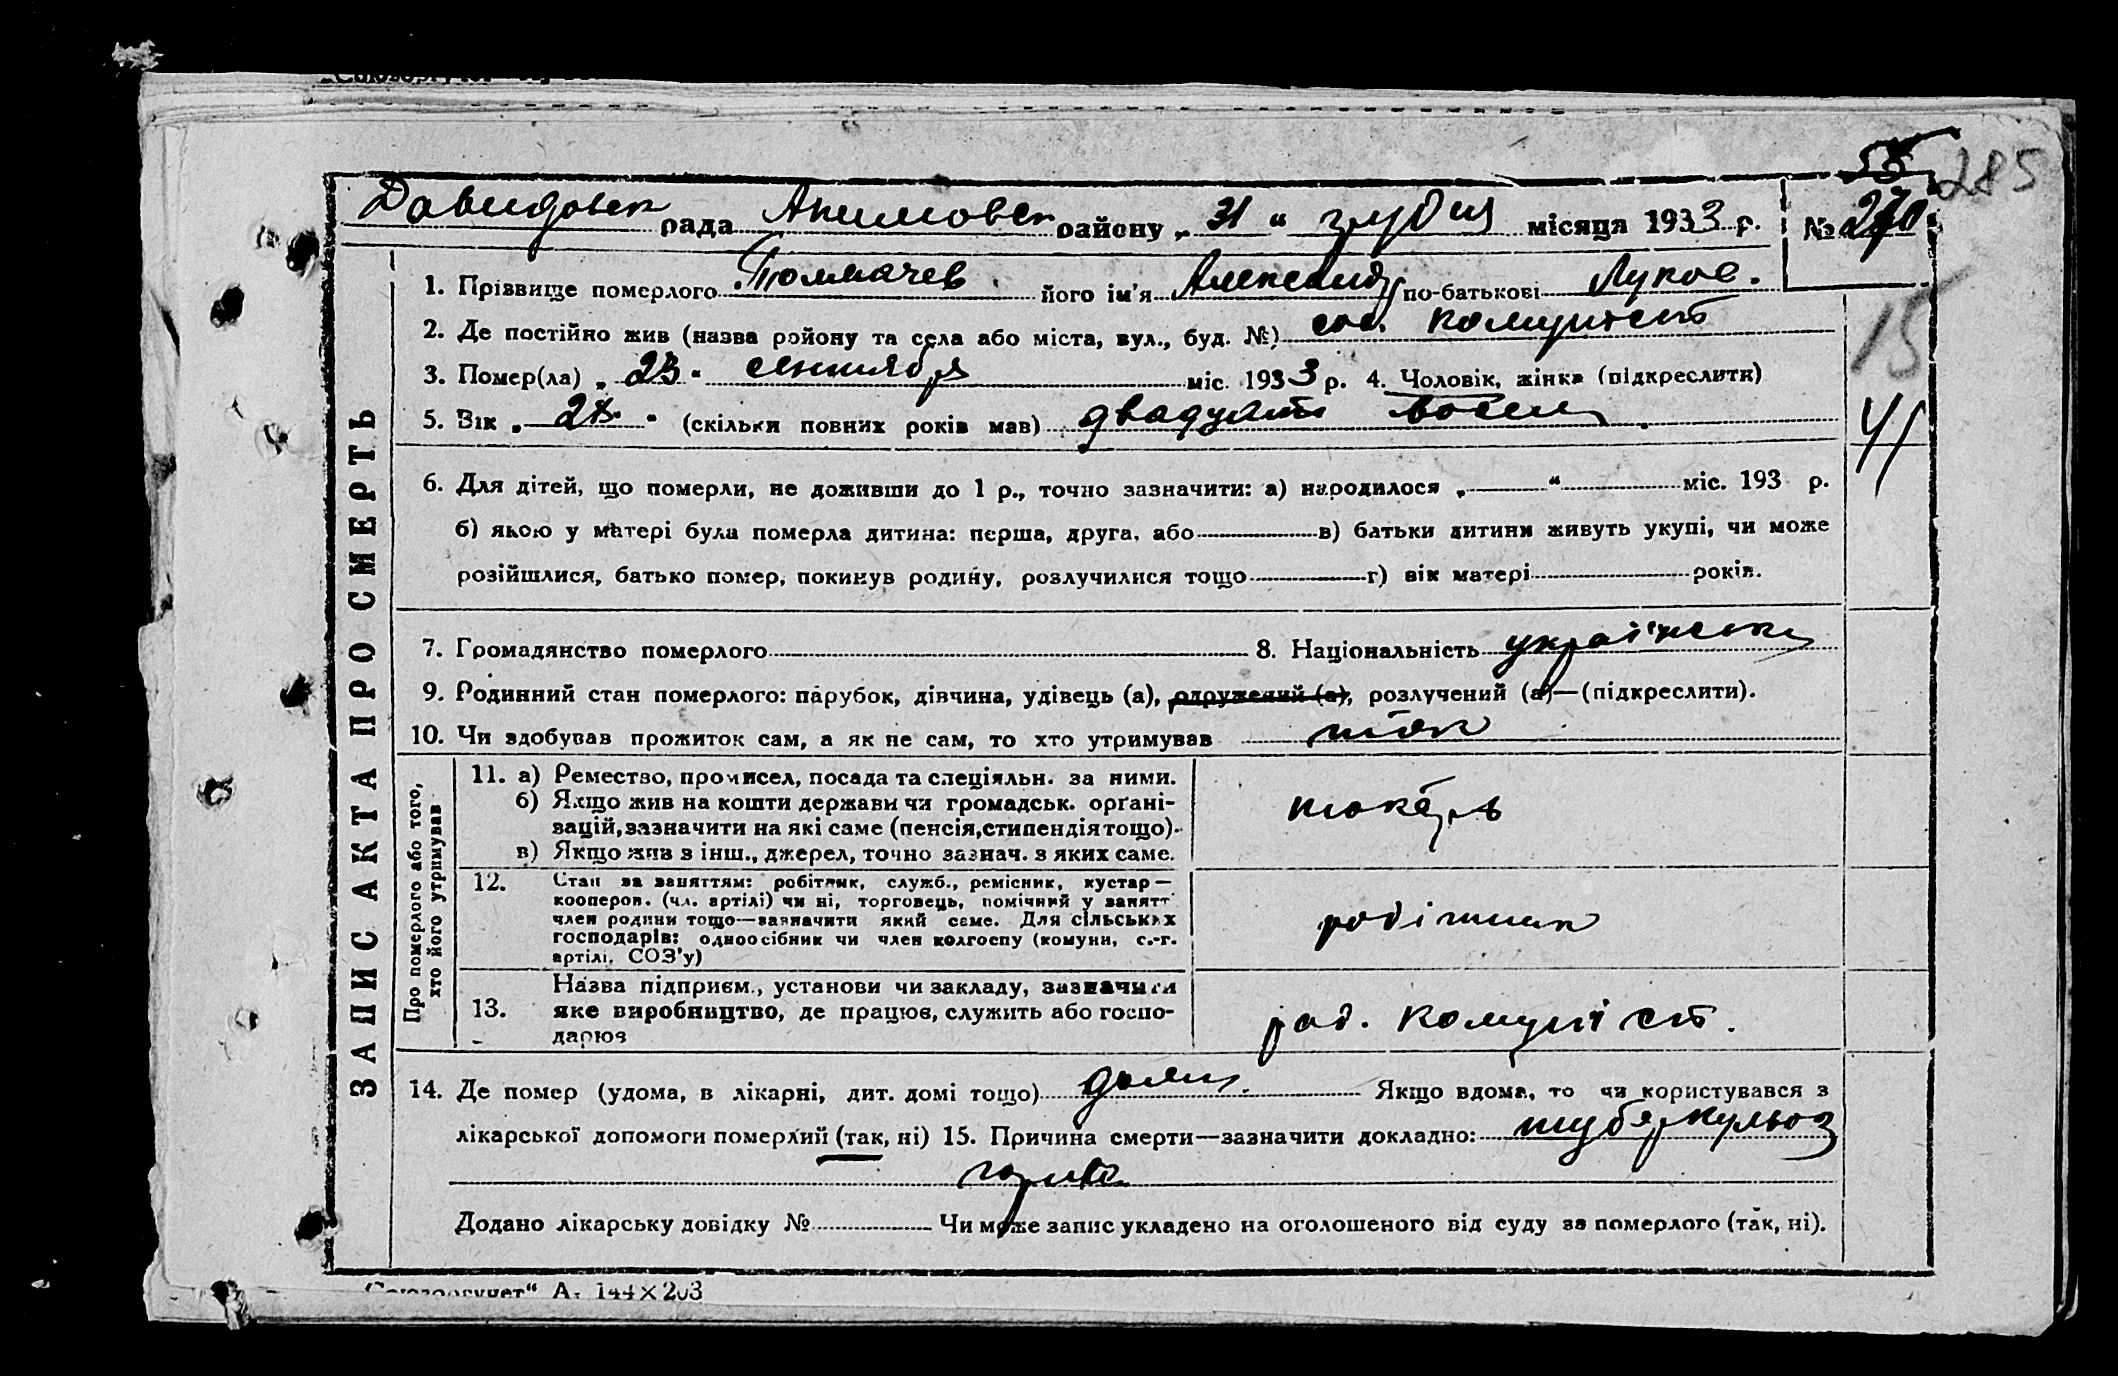 55 285
Давидовск рада Акимовск району „ 31 “ грудня місяця 1933 р. № 270
1. Прізвище померлого Толмачев його ім'я Александр по-батькові Луков.
15
2. Де постійно жив (назва району та села або міста, вул., буд. №) сов. Комунист
3. Помер(ла) „ 23 “ сентября міс. 1933 р. 4. Чоловік, жінка (підкреслити)
5. Вік „ 28 “ (скільки повних років мав) двадцать восем
41
6. Для дітей, що померли, не доживши до 1 р., точно зазначити: а) народилося „ “ міс. 193 р.
б) якою у матері була померла дитина: перша, друга, або в) батьки дитини живуть укупі, чи може
розійшлися, батько помер, покинув родину, розлучилися тощо г) вік матері років.
7. Громадянство померлого 8. Національність
9. Родинний стан померлого: парубок, дівчина, удівець (а), одружений (а), розлучений (а)—(підкреслити).
10. Чи здобував прожиток сам, а як не сам, то хто утримував
ЗАПИС АКТА ПРО СМЕРТЬ
Про померлого або того,
хто його утримував
11. а) Ремество, промисел, посада та спеціяльн. за ними.
б) Якщо жив на кошти держави чи громадськ. орґані-
зацій, зазначити на які саме (пенсія, стипендія тощо).
в) Якщо жив з інш., джерел, точно зазнач. з яких саме.
токарь
12. Стан за заняттям: робітник, служб., ремісник, кустар—
кооперов. (чл. артілі) чи ні, торговець, помічний у занятт
член родини тощо—зазначити який саме. Для сільських
господарів: одноосібник чи член колгоспу (комуни, с.-г.
артілі, СОЗ'у)
робітник
13. Назва підприєм., установи чи закладу, зазначити
яке виробництво, де працюв, служить або госпо-
дарюв
рад. Комуніст.
14. Де помер (удома, в лікарні, дит. домі тощо) дома. Якщо вдома, то чи користувався з
лікарської допомоги померлий (так, ні) 15. Причина смерти—зазначити докладно: туберкульоз
Додано лікарську довідку № Чи може запис укладено на оголошеного від суду за померлого (так, ні).
„Союзоргучет“ А. 144×203